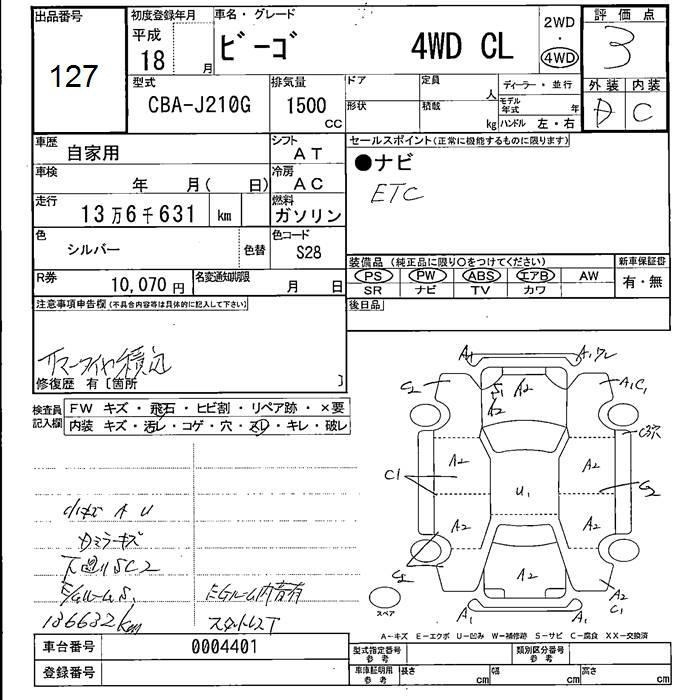 出品番号
127
初度登録年月
平成
18 月
車名・グレード
ビーゴ 4WD CL
2WD
・
4WD
評価点
3
外装 内装
D C
型式
CBA-J210G
排気量
1500
CC
ドア 定員 人
形状 積載 kg
ディーラー・並行
モデル年式 年
ハンドル 左・右
車歴
自家用
シフト
AT
車検
年 月( 日)
冷房
AC
走行
13万6千631 km
燃料
ガソリン
色
シルバー
色替
色コード
S28
R券
10,070 円
名変通知期限
月 日
セールスポイント(正常に機能するものに限ります)
●ナビ
ETC
装備品 (純正品に限り○をつけてください)
新車保証書
PS PW ABS エアB AW
SR ナビ TV カワ
有・無
後日品
注意事項申告欄(不具合内容等は具体的に記入して下さい)
修復歴 有〔箇所 〕
検査員
記入欄
FW キズ・飛石・ヒビ割・リペア跡・×要
内装 キズ・汚レ・コゲ・穴・スレ・キレ・破レ
A1 A1
C2 S1 A2 A1 C1
A2
C3穴
C1 A2 A2
U1 C2
A2 A2
C2
A2 A2
C1
A1 A1
スペア
A U
ミラーキズ
下廻りSC2
E/GルームS.
136632km
EGルーム内音有
スタットレスT
A〜キズ E〜エクボ U〜凹み W〜補修跡 S〜サビ C〜腐食 XX〜交換済
車台番号
0004401
登録番号
型式指定番号
参考
類別区分番号
参考
車庫証明用
参考
長さ cm 幅 cm 高さ cm